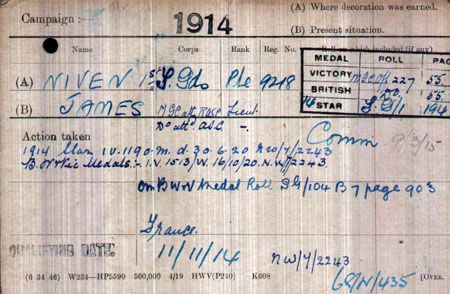 (A) Where decoration was earned.
Campaign :— 1914
(B) Present situation.
Name Corps Rank Reg. No. Roll on which included (if any)
MEDAL ROLL PAGE
(A) NIVEN 1st S. Gds Pte 9218
VICTORY 227 55
BRITISH Do. 55
(B) JAMES M.G.C. att. Lieut
14 STAR S.G/1 194
Do att. A.S.C. -,,-
Action taken
Comm 9/3/15
1914 Star I.V. 1190. M. d. 30.6.20 NW/7/2243
B.W & Vic Medals:- I.V. 1513/W. 16/10/20. N.W/7/2243
On B W V Medal Roll SG/104 B 7 page 903
France
QUALIFYING DATE 11/11/14 NW/7/2243
(6 34 46) W234—HP5590 500,000 4/19 HWV(P240) K608 [OVER.
68/N/435